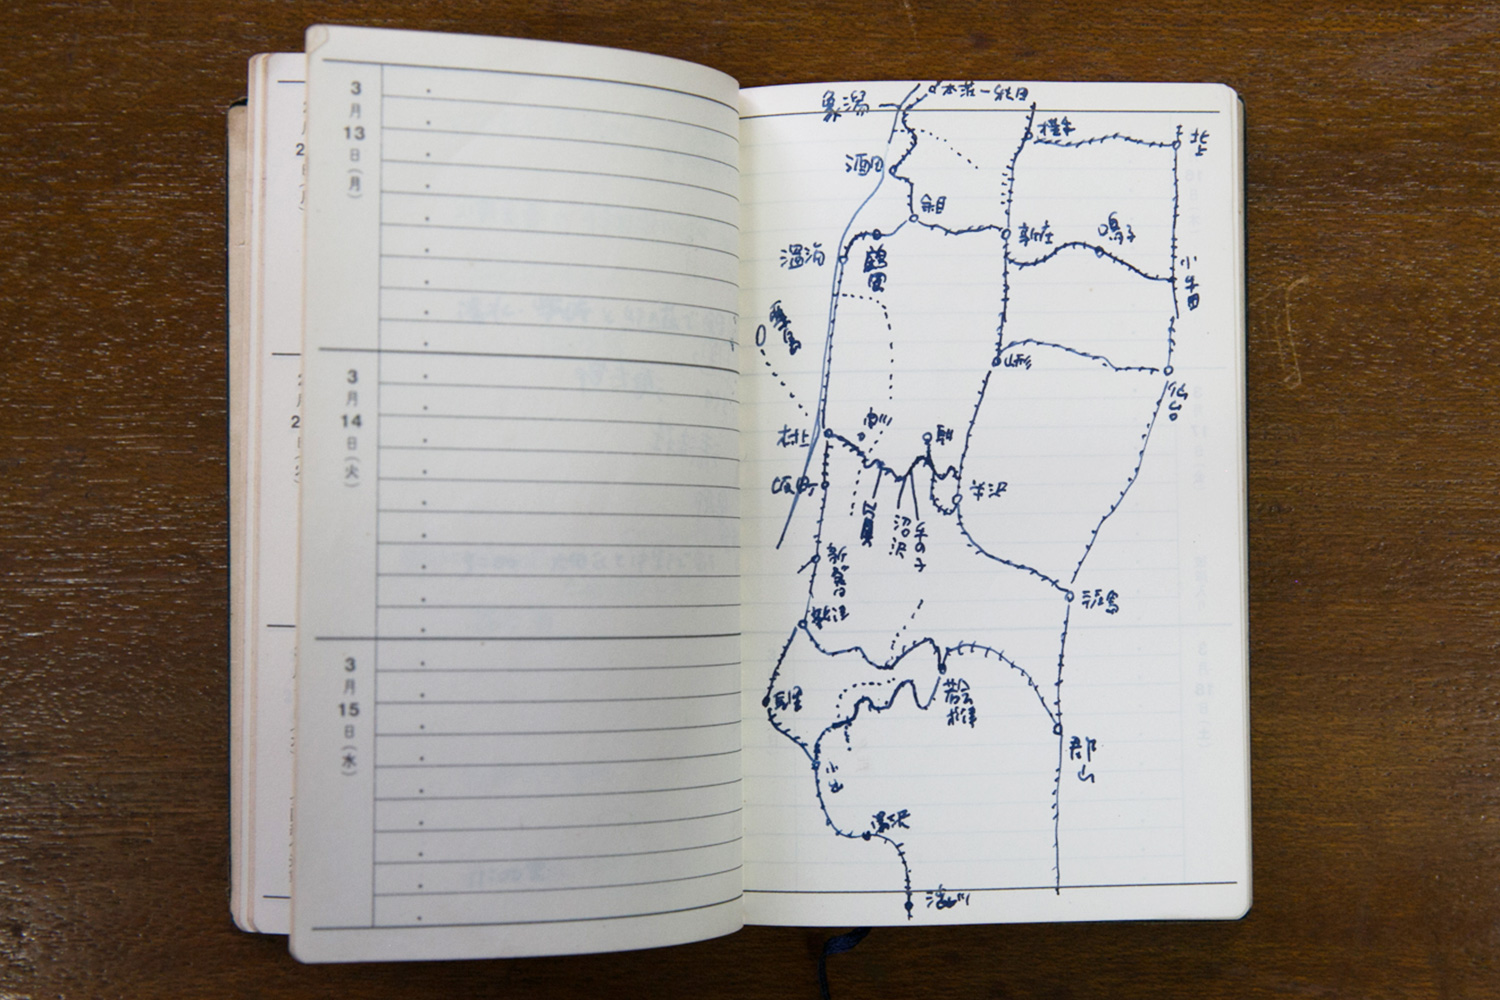 3月13日(月)
3月14日(火)
3月15日(水)
象潟
本荘—秋田
横手
北上
酒田
余目
新庄
鳴子
小牛田
温海
鶴岡
粟島
山形
仙台
村上
坂町
米沢
沼沢
手の子
新発田
福島
新津
長岡
会津
若松
郡山
小出
湯沢